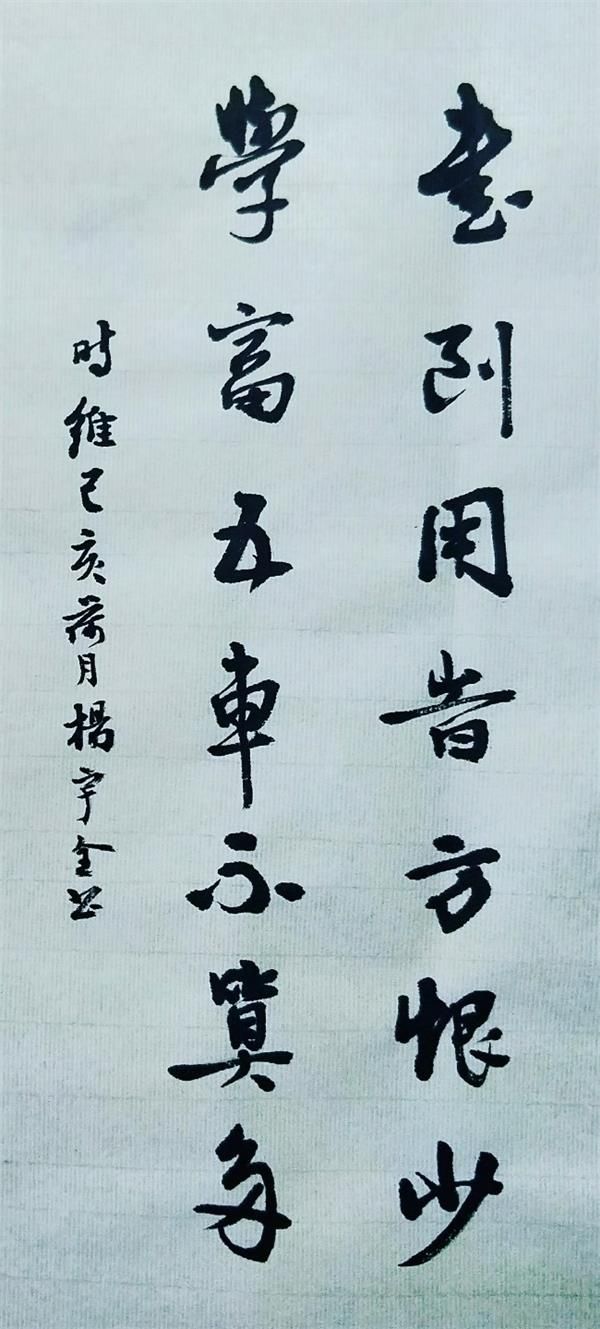 書到用昔方恨少
學富五車不算多
时維己亥荷月楊宇全书